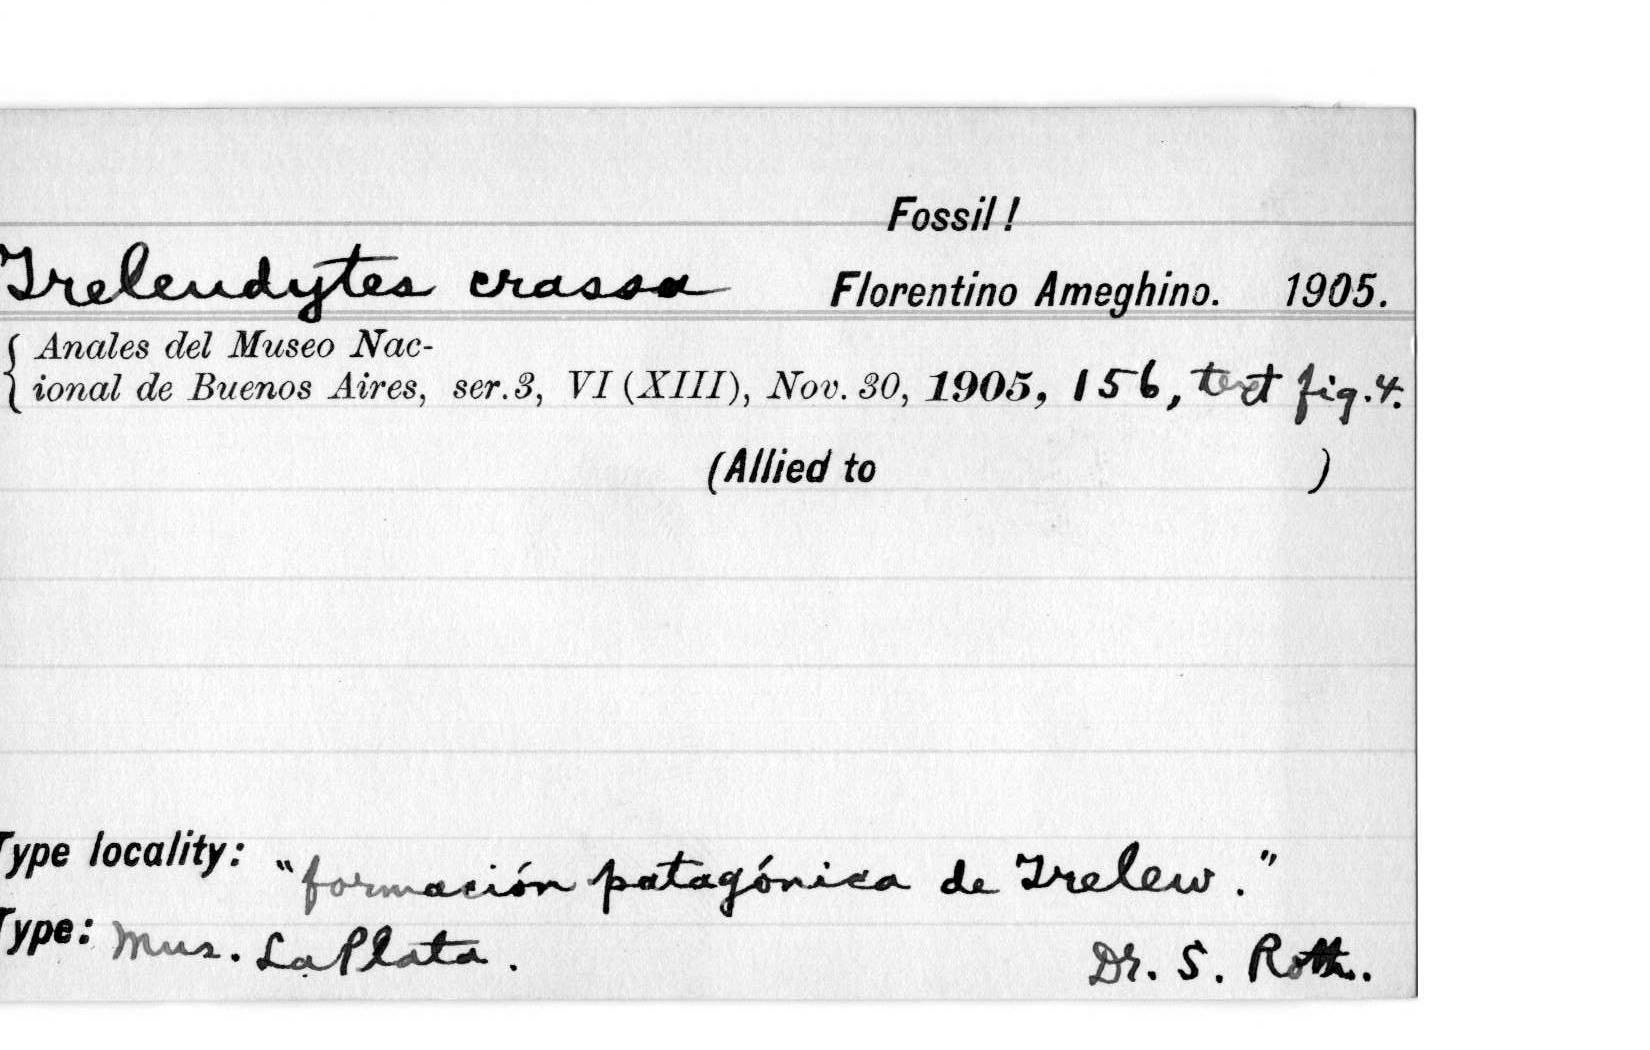 Fossil!
Treleudytes crassa Florentino Ameghino. 1905.
{ Anales del Museo Nac-
ional de Buenos Aires, ser.3, VI (XIII), Nov. 30, 1905, 156, text fig. 4.
(Allied to )
Type locality: "formación patagónica de Trelew."
Type: Mus. La Plata. Dr. S. Roth.